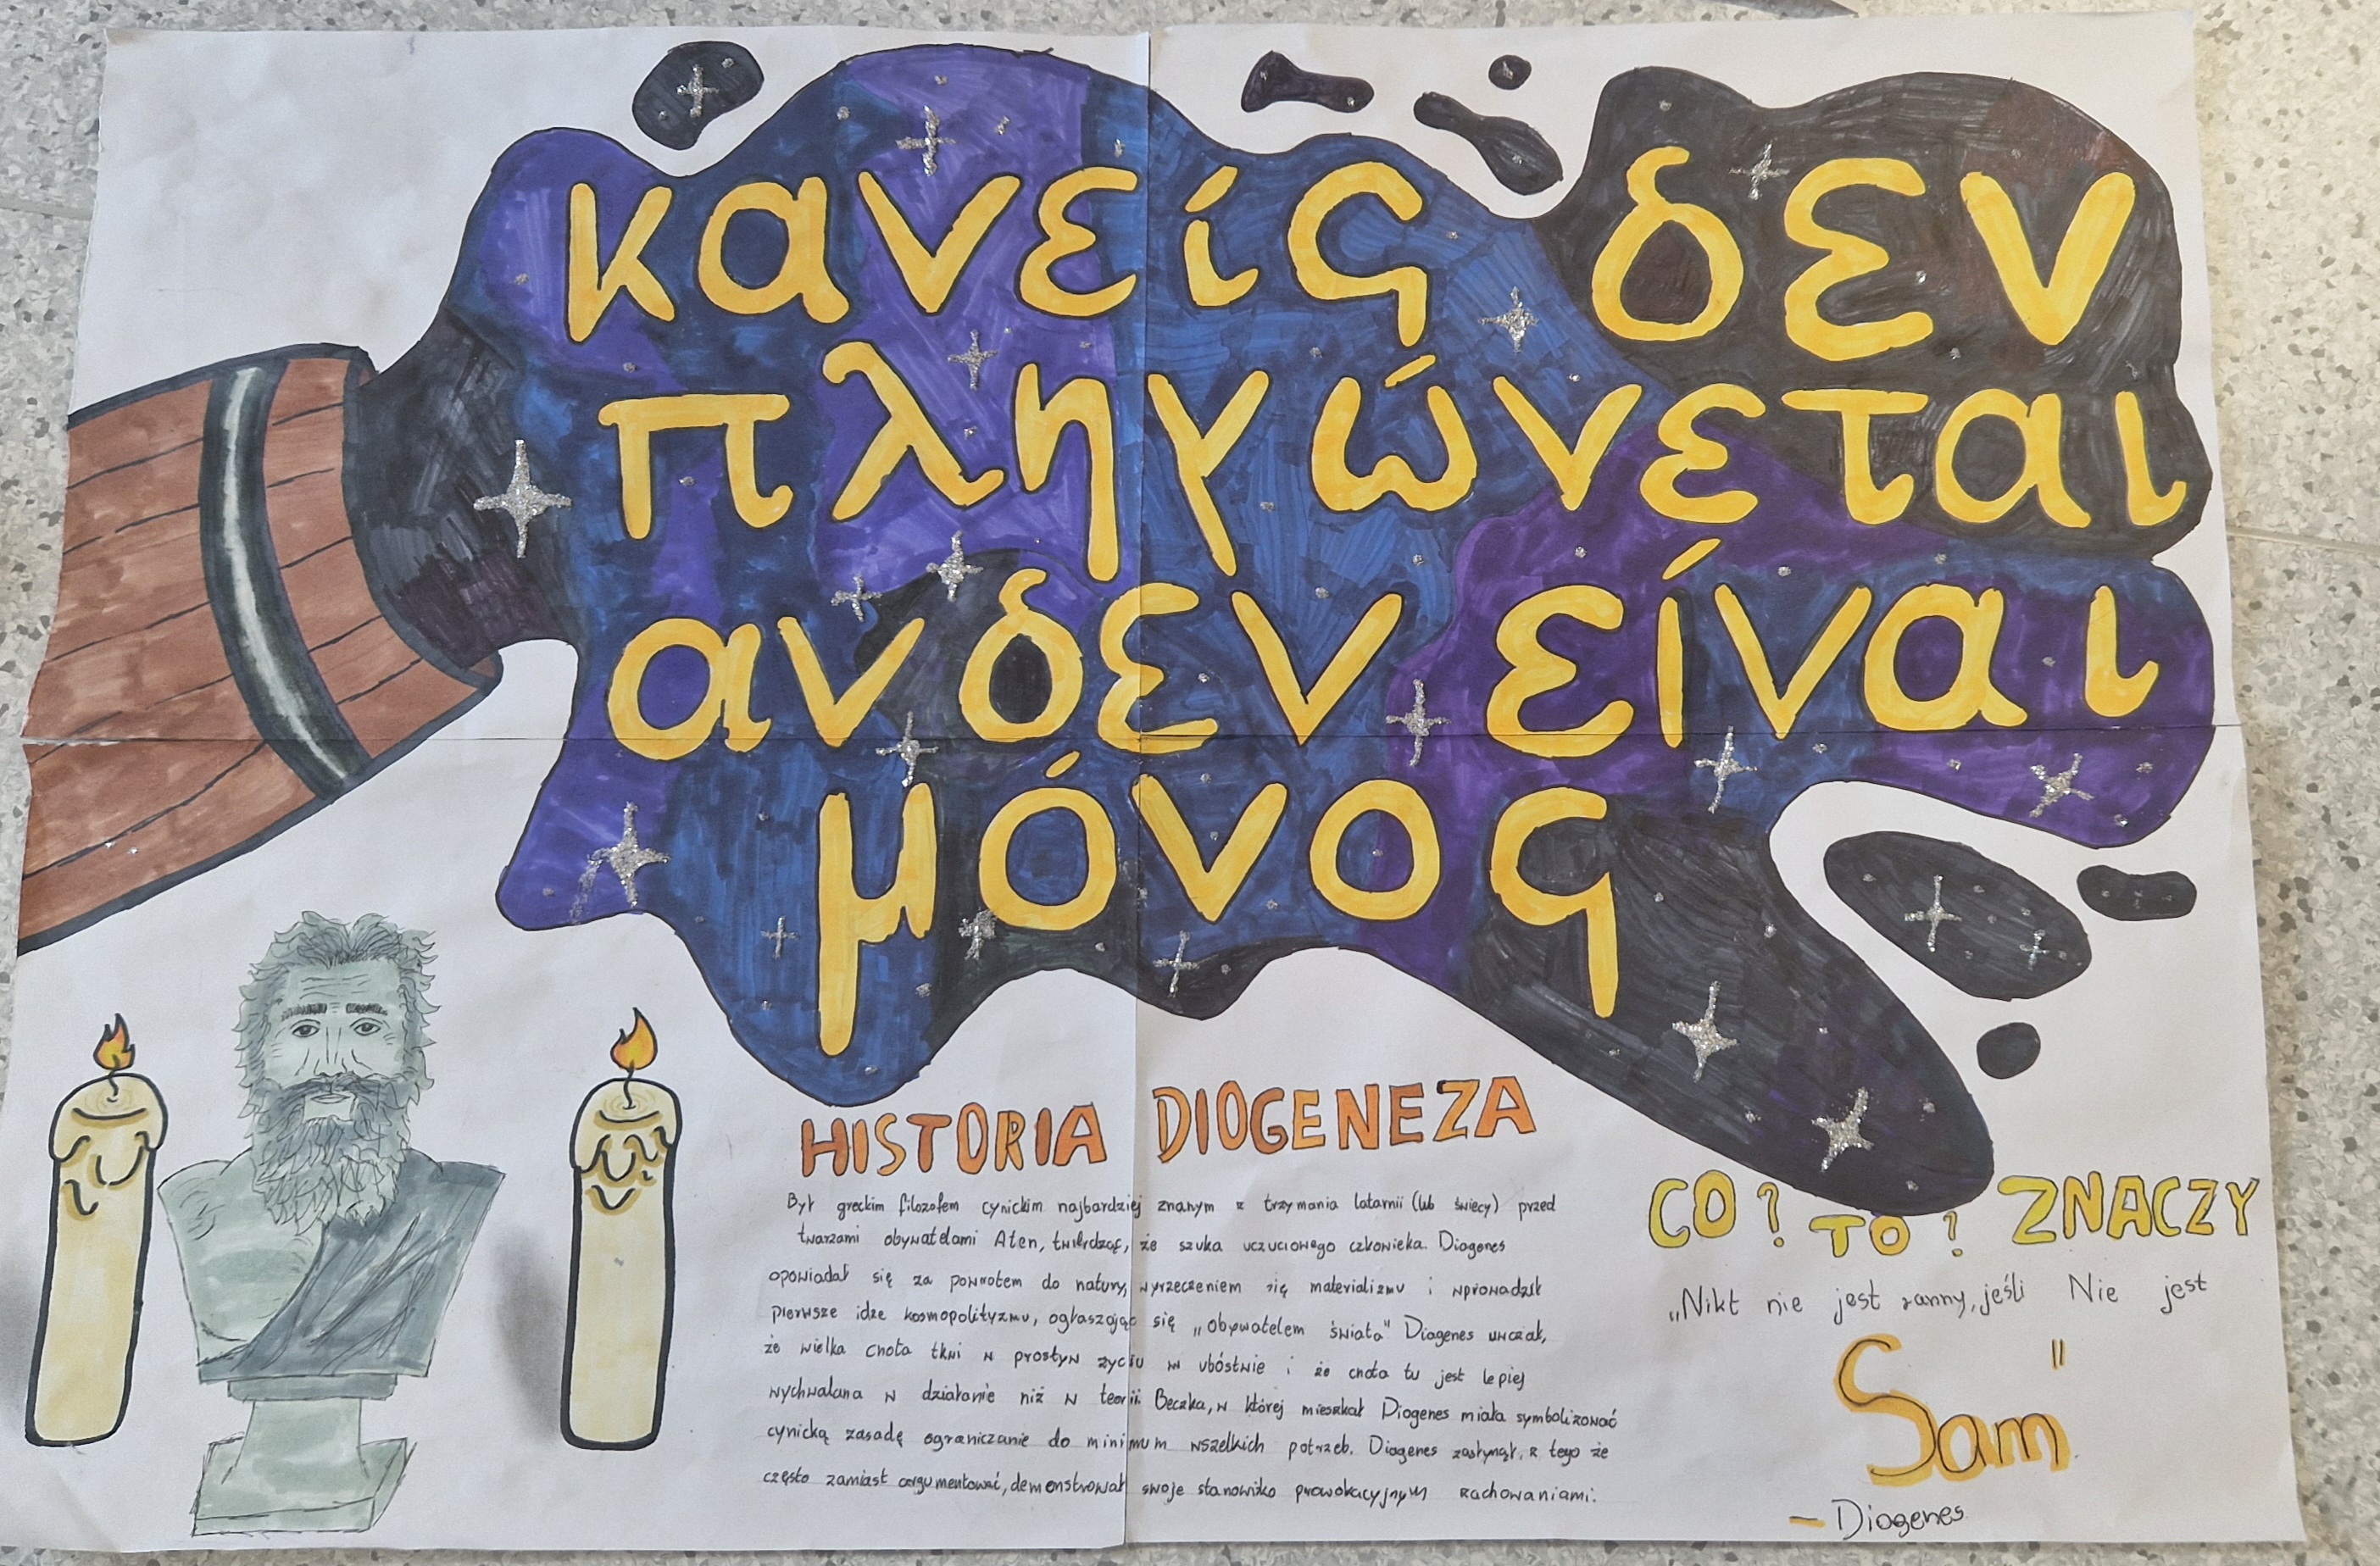 κανείς δεν
πληγώνεται
αν δεν είναι
μόνος
HISTORIA DIOGENEZA
Był greckim filozofem cynickim najbardziej znanym z trzymania latarnii (lub świecy) przed
twarzami obywatelami Aten, twierdząc, że szuka uczuciowego człowieka. Diogenes
opowiadał się za powrotem do natury, wyrzeczeniem się materializmu i wprowadził
pierwsze idze kosmopolityzmu, ogłaszając się „obywatelem świata" Diogenes uwczał,
że wielka cnota tkwi w prostyw życiu w ubóstwie i że cnota tu jest lepiej
wychwalana w działanie niż w teorii. Beczka, w której mieszkał Diogenes miała symbolizować
cynicką zasadę ograniczanie do minimum wszelkich potrzeb. Diogenes zasłynął, z tego że
często zamiast argumentować, demonstrował swoje stanowisko prowokacyjnym zachowaniami.
CO? TO? ZNACZY
„Nikt nie jest ranny, jeśli Nie jest
Sam"
– Diogenes